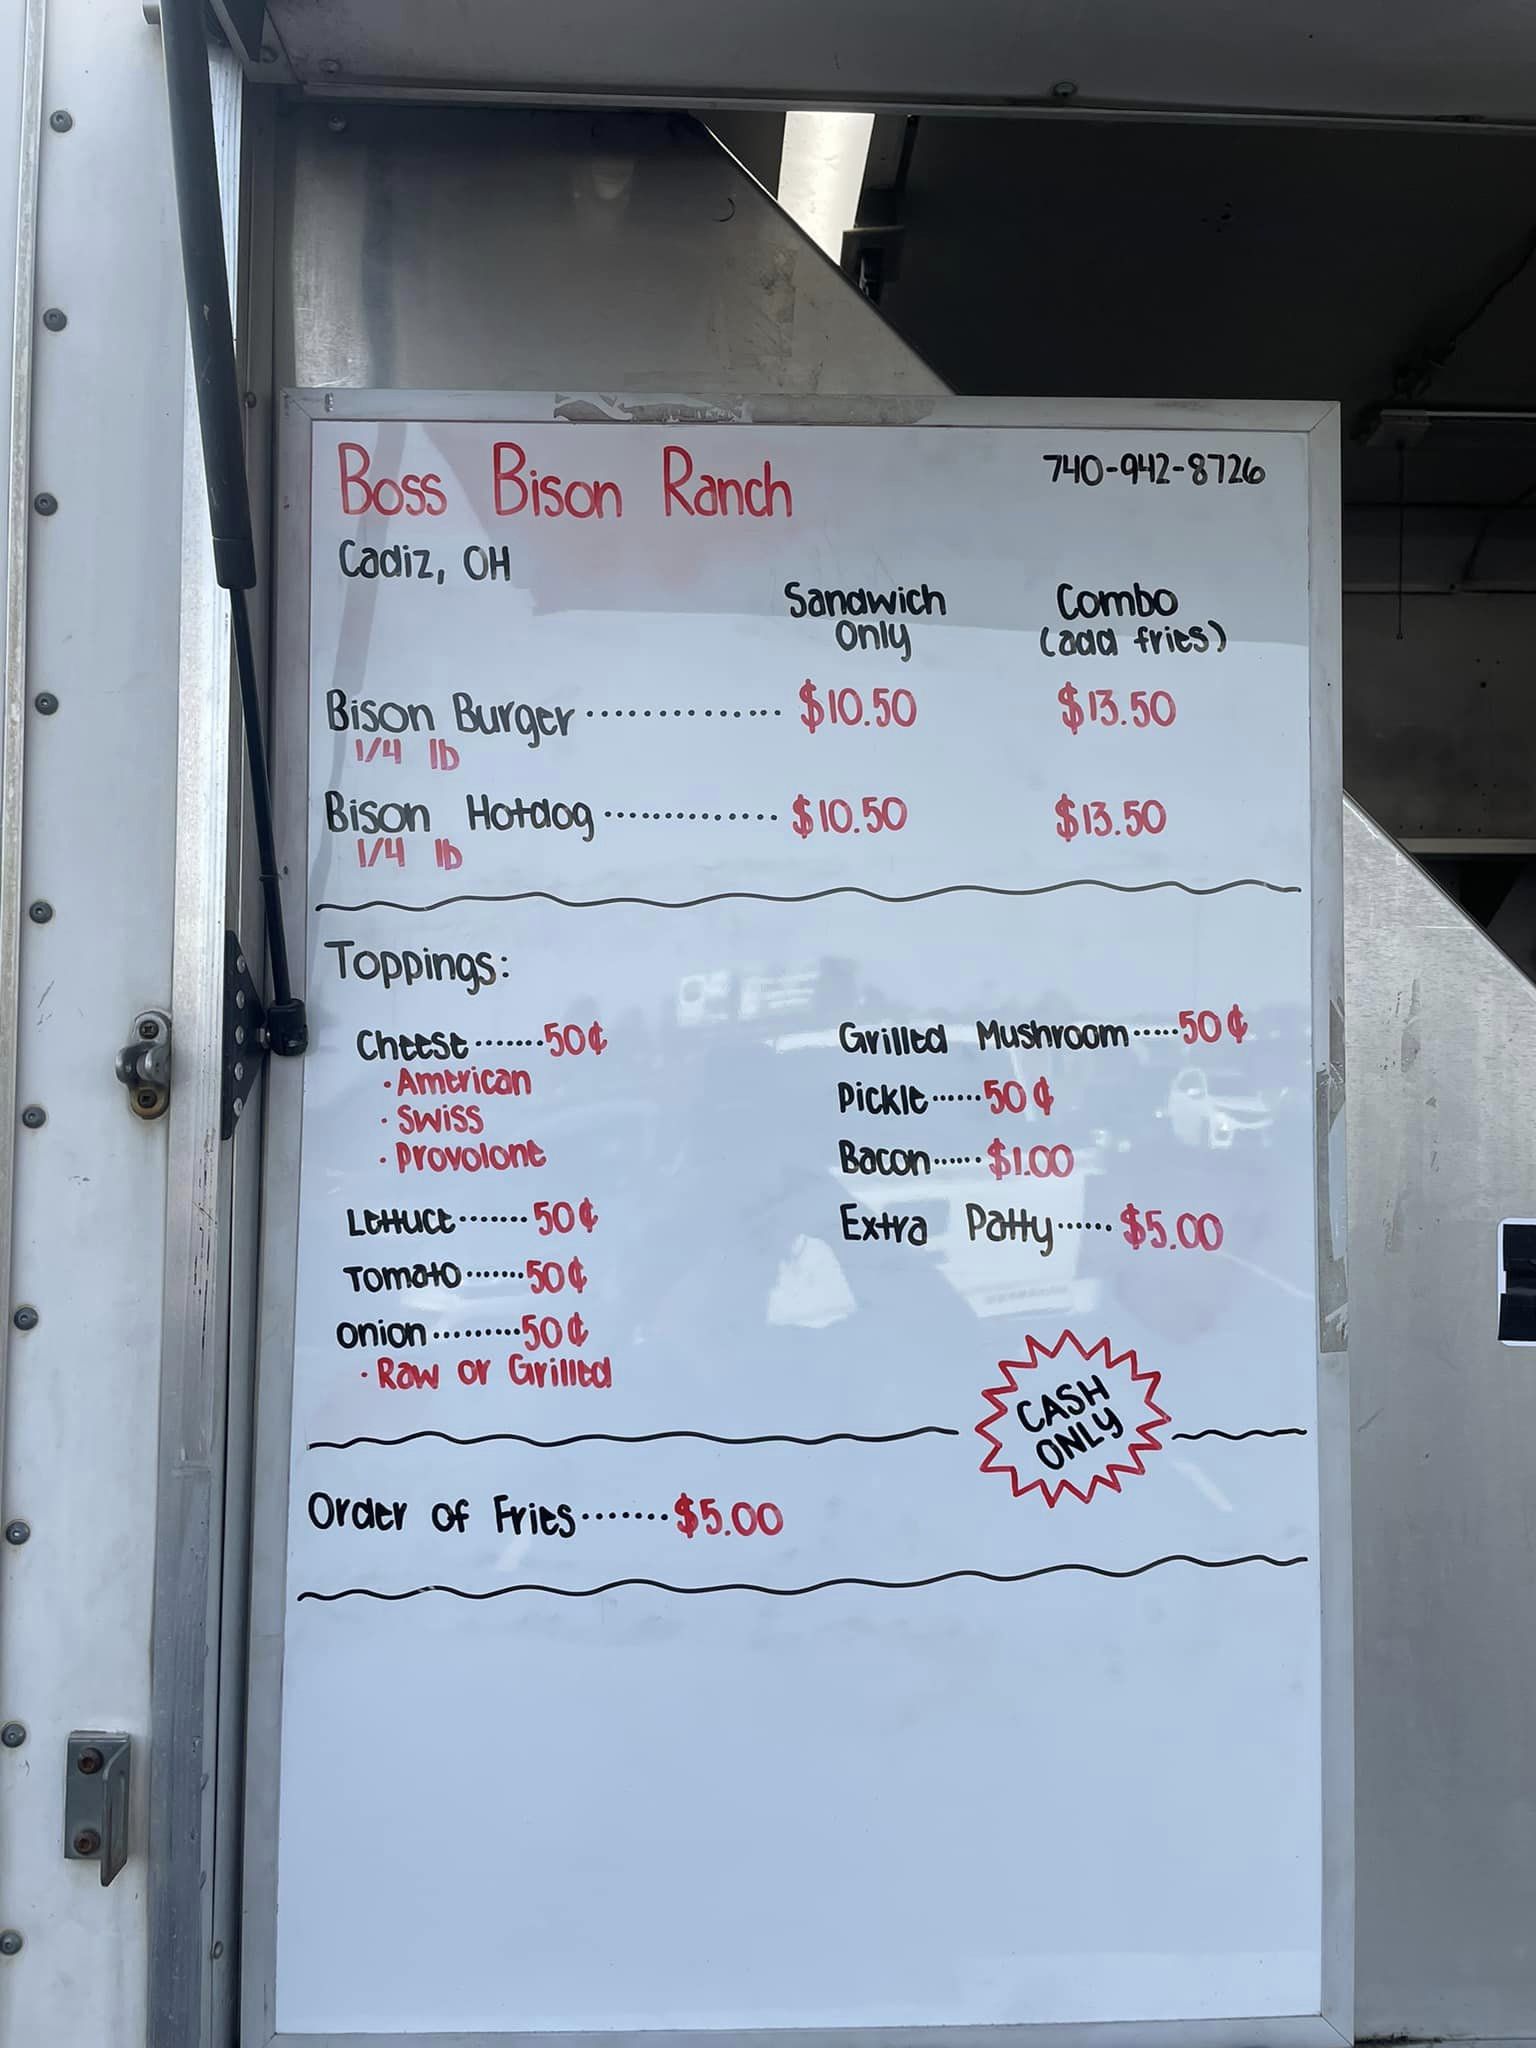 Boss Bison Ranch 740-942-8726
Cadiz, OH
Sandwich Only Combo (add fries)
Bison Burger .............. $10.50 $13.50
1/4 lb
Bison Hotdog .............. $10.50 $13.50
1/4 lb
Toppings:
Cheese.......50¢
• American
• Swiss
• Provolone
Lettuce.......50¢
Tomato.......50¢
Onion.........50¢
• Raw or Grilled
Grilled Mushroom.....50¢
Pickle......50¢
Bacon......$1.00
Extra Patty......$5.00
CASH
ONLY
Order of Fries.......$5.00